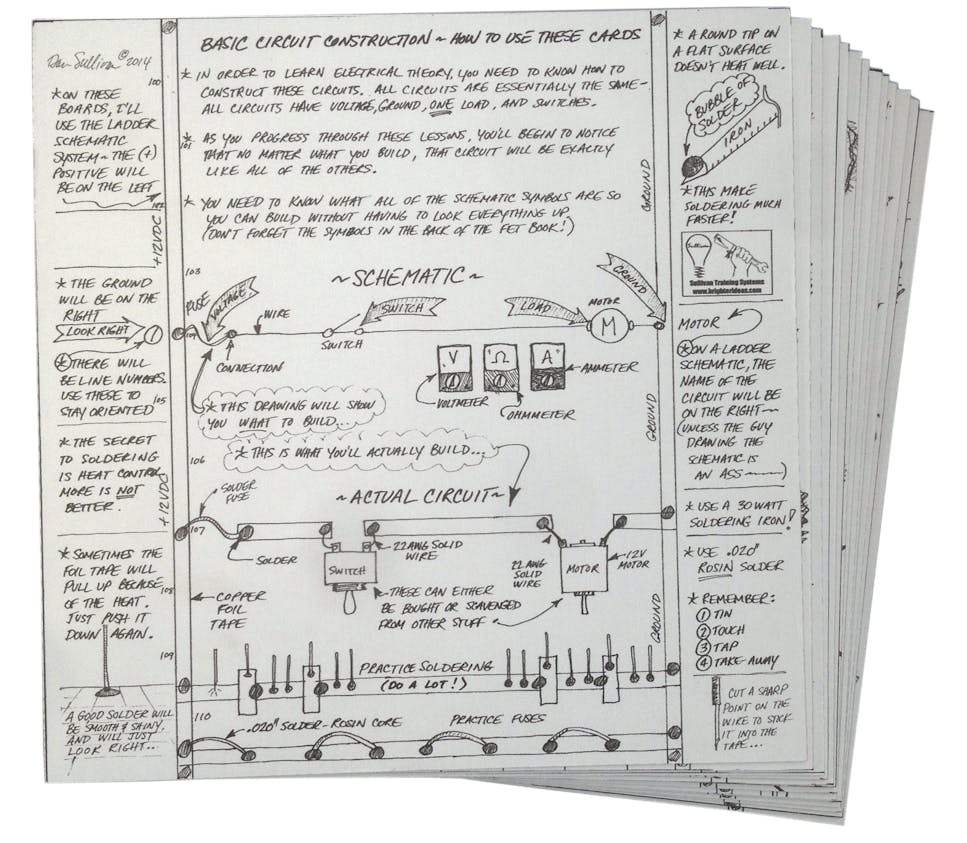 Dan Sullivan © 2014
100
* ON THESE
BOARDS, I'LL
USE THE LADDER
SCHEMATIC
SYSTEM ~ THE (+)
POSITIVE WILL
BE ON THE LEFT
102
+12VDC
* THE GROUND
WILL BE ON THE
RIGHT
LOOK RIGHT
1
* THERE WILL
BE LINE NUMBERS.
USE THESE TO
STAY ORIENTED
105
* THE SECRET
TO SOLDERING
IS HEAT CONTROL
MORE IS NOT
BETTER.
+12VDC
* SOMETIMES THE
FOIL TAPE WILL
PULL UP BECAUSE
OF THE HEAT.
JUST PUSH IT
DOWN AGAIN.
108
109
A GOOD SOLDER WILL
BE SMOOTH & SHINY,
AND WILL JUST
LOOK RIGHT...
BASIC CIRCUIT CONSTRUCTION ~ HOW TO USE THESE CARDS
* IN ORDER TO LEARN ELECTRICAL THEORY, YOU NEED TO KNOW HOW TO
CONSTRUCT THESE CIRCUITS. ALL CIRCUITS ARE ESSENTIALLY THE SAME~
ALL CIRCUITS HAVE VOLTAGE, GROUND, ONE LOAD, AND SWITCHES.
101
* AS YOU PROGRESS THROUGH THESE LESSONS, YOU'LL BEGIN TO NOTICE
THAT NO MATTER WHAT YOU BUILD, THAT CIRCUIT WILL BE EXACTLY
LIKE ALL OF THE OTHERS.
* YOU NEED TO KNOW WHAT ALL OF THE SCHEMATIC SYMBOLS ARE SO
YOU CAN BUILD WITHOUT HAVING TO LOOK EVERYTHING UP.
(DON'T FORGET THE SYMBOLS IN THE BACK OF THE FET BOOK!)
GROUND
103
~SCHEMATIC~
FUSE
VOLTAGE
WIRE
SWITCH
SWITCH
LOAD
MOTOR
M
GROUND
104
CONNECTION
V
Ω
A
VOLTMETER
OHMMETER
AMMETER
* THIS DRAWING WILL SHOW
YOU WHAT TO BUILD...
GROUND
106
* THIS IS WHAT YOU'LL ACTUALLY BUILD...
SOLDER
FUSE
~ACTUAL CIRCUIT~
107
SOLDER
22 AWG SOLID
WIRE
SWITCH
22 AWG
SOLID
WIRE
MOTOR
12V
MOTOR
* THESE CAN EITHER
BE BOUGHT OR SCAVENGED
FROM OTHER STUFF
COPPER
FOIL
TAPE
GROUND
PRACTICE SOLDERING
(DO A LOT!)
110
.020" SOLDER - ROSIN CORE
PRACTICE FUSES
* A ROUND TIP ON
A FLAT SURFACE
DOESN'T HEAT WELL.
BUBBLE OF
SOLDER
IRON
* THIS MAKE
SOLDERING MUCH
FASTER!
Sullivan
Sullivan Training Systems
www.brighterideas.com
MOTOR
* ON A LADDER
SCHEMATIC, THE
NAME OF THE
CIRCUIT WILL BE
ON THE RIGHT~
(UNLESS THE GUY
DRAWING THE
SCHEMATIC IS
AN ASS~)
* USE A 30 WATT
SOLDERING IRON!
* USE .020"
ROSIN SOLDER
* REMEMBER:
1 TIN
2 TOUCH
3 TAP
4 TAKE-AWAY
CUT A SHARP
POINT ON THE
WIRE TO STICK
IT INTO THE
TAPE...